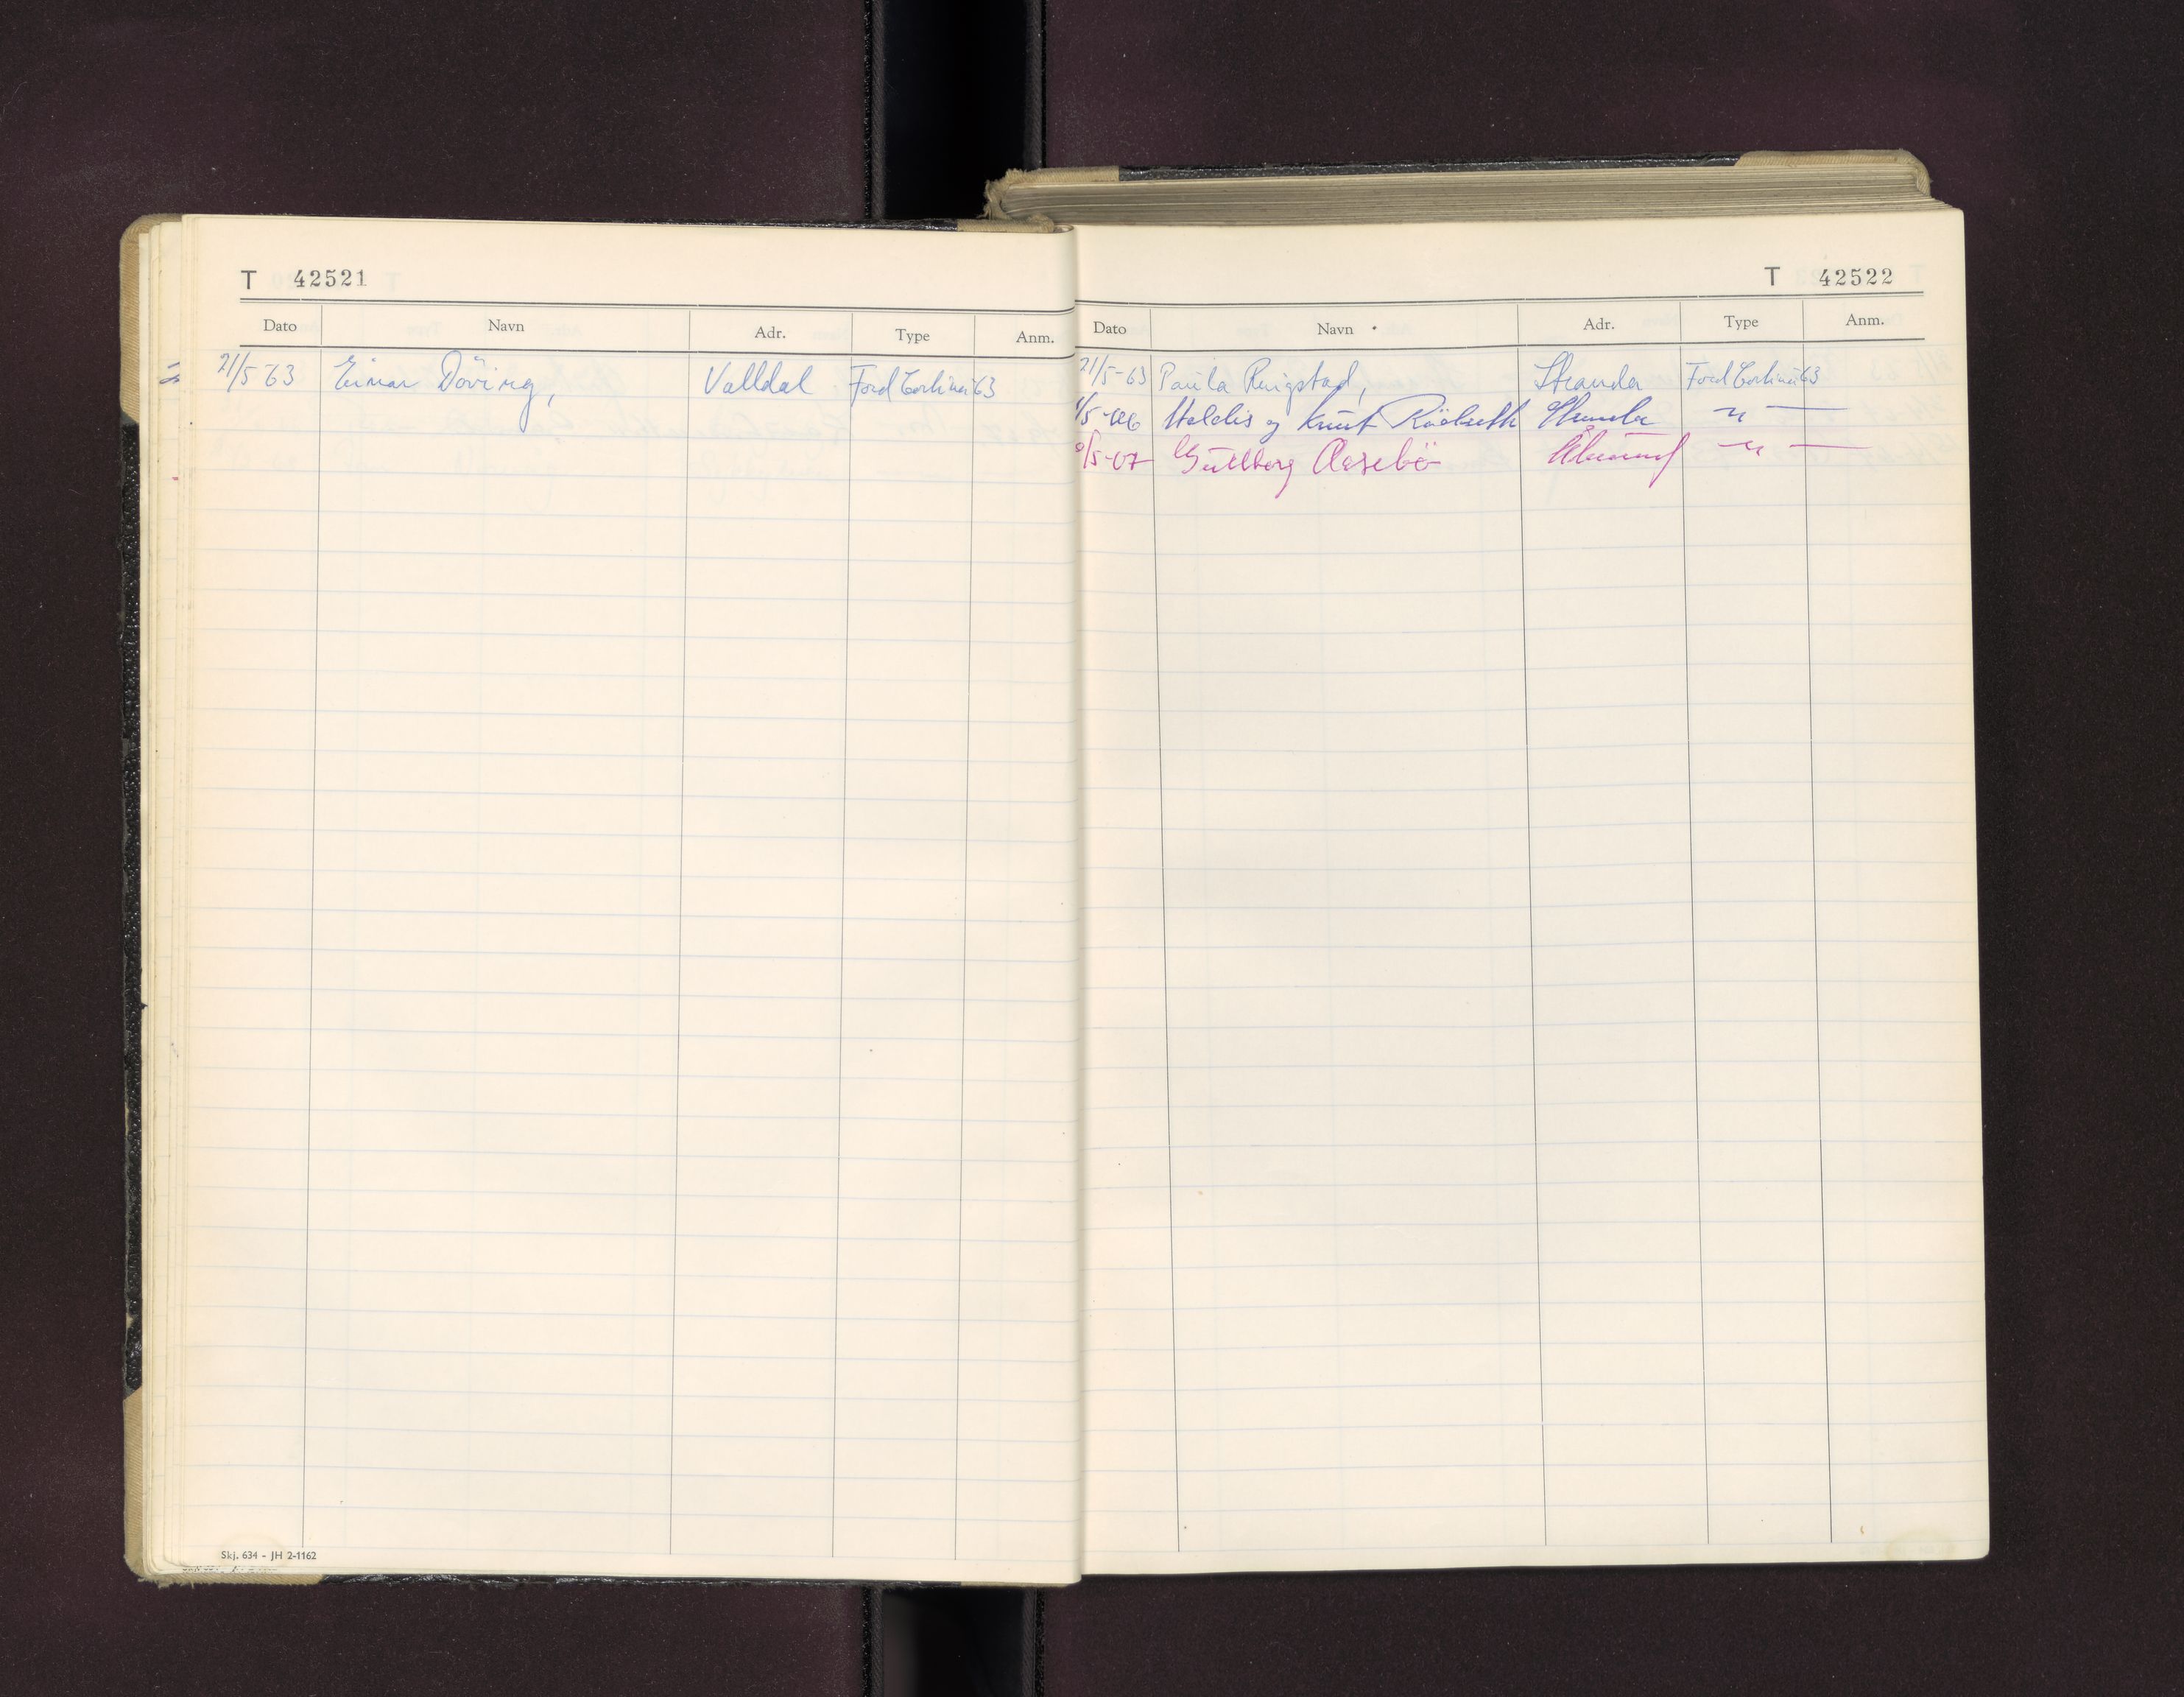 T 42521
Dato Navn Adr. Type Anm.
21/5 63 Einar Döving, Valldal Ford Cortina 63
Skj. 634 - JH 2-1162
T 42522
Dato Navn Adr. Type Anm.
21/5-63 Paula Ringstad, Stranda Ford Cortina 63
/5-66 og Knut Stranda — " —
/5-67 Gullborg Aasebö Ålesund — " —